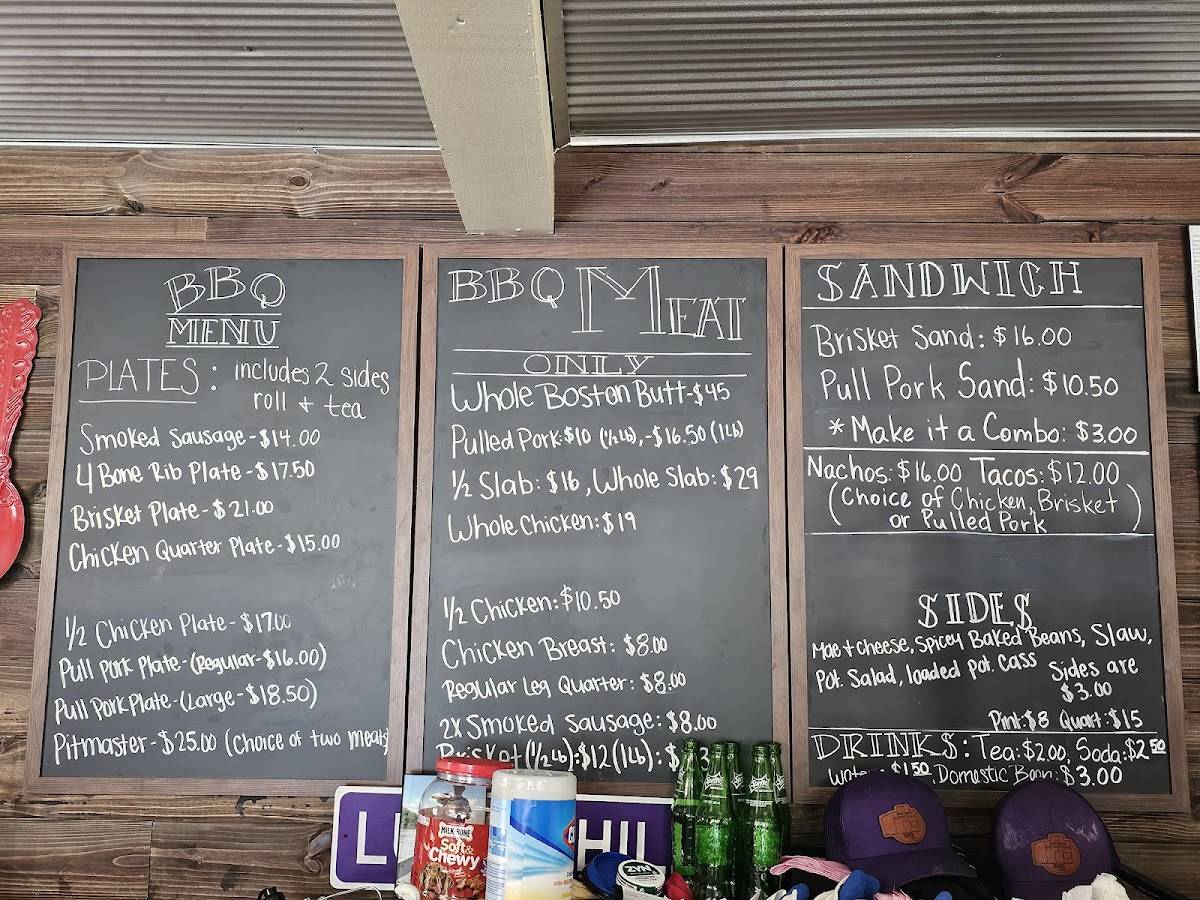 BBQ
MENU
PLATES: includes 2 sides
roll + tea
Smoked Sausage - $14.00
4 Bone Rib Plate - $17.50
Brisket Plate - $21.00
Chicken Quarter Plate - $15.00
1/2 Chicken Plate - $17.00
Pull Pork Plate - (Regular - $16.00)
Pull Pork Plate - (Large - $18.50)
Pitmaster - $25.00 (Choice of two meats
BBQ MEAT
ONLY
Whole Boston Butt - $45
Pulled Pork: $10 (1/2 lb), - $16.50 (1 lb)
1/2 Slab: $16, Whole Slab: $29
Whole Chicken: $19
1/2 Chicken: $10.50
Chicken Breast: $8.00
Regular Leg Quarter: $8.00
2x Smoked Sausage: $8.00
Brisket (1/2 Lb): $12 (1 Lb): $
SANDWICH
Brisket Sand: $16.00
Pull Pork Sand: $10.50
* Make it a Combo: $3.00
Nachos: $16.00 Tacos: $12.00
(Choice of Chicken, Brisket
or Pulled Pork)
SIDES
Mac + cheese, Spicey Baked Beans, Slaw,
Pot. Salad, loaded pot. Cass
Sides are
$3.00
Pint: $8 Quart: $15
DRINKS: Tea: $2.00, Soda: $2.50
Water $1.50, Domestic Beer: $3.00
MILK-BONE
Soft &
Chewy
L
HIL
ZYN